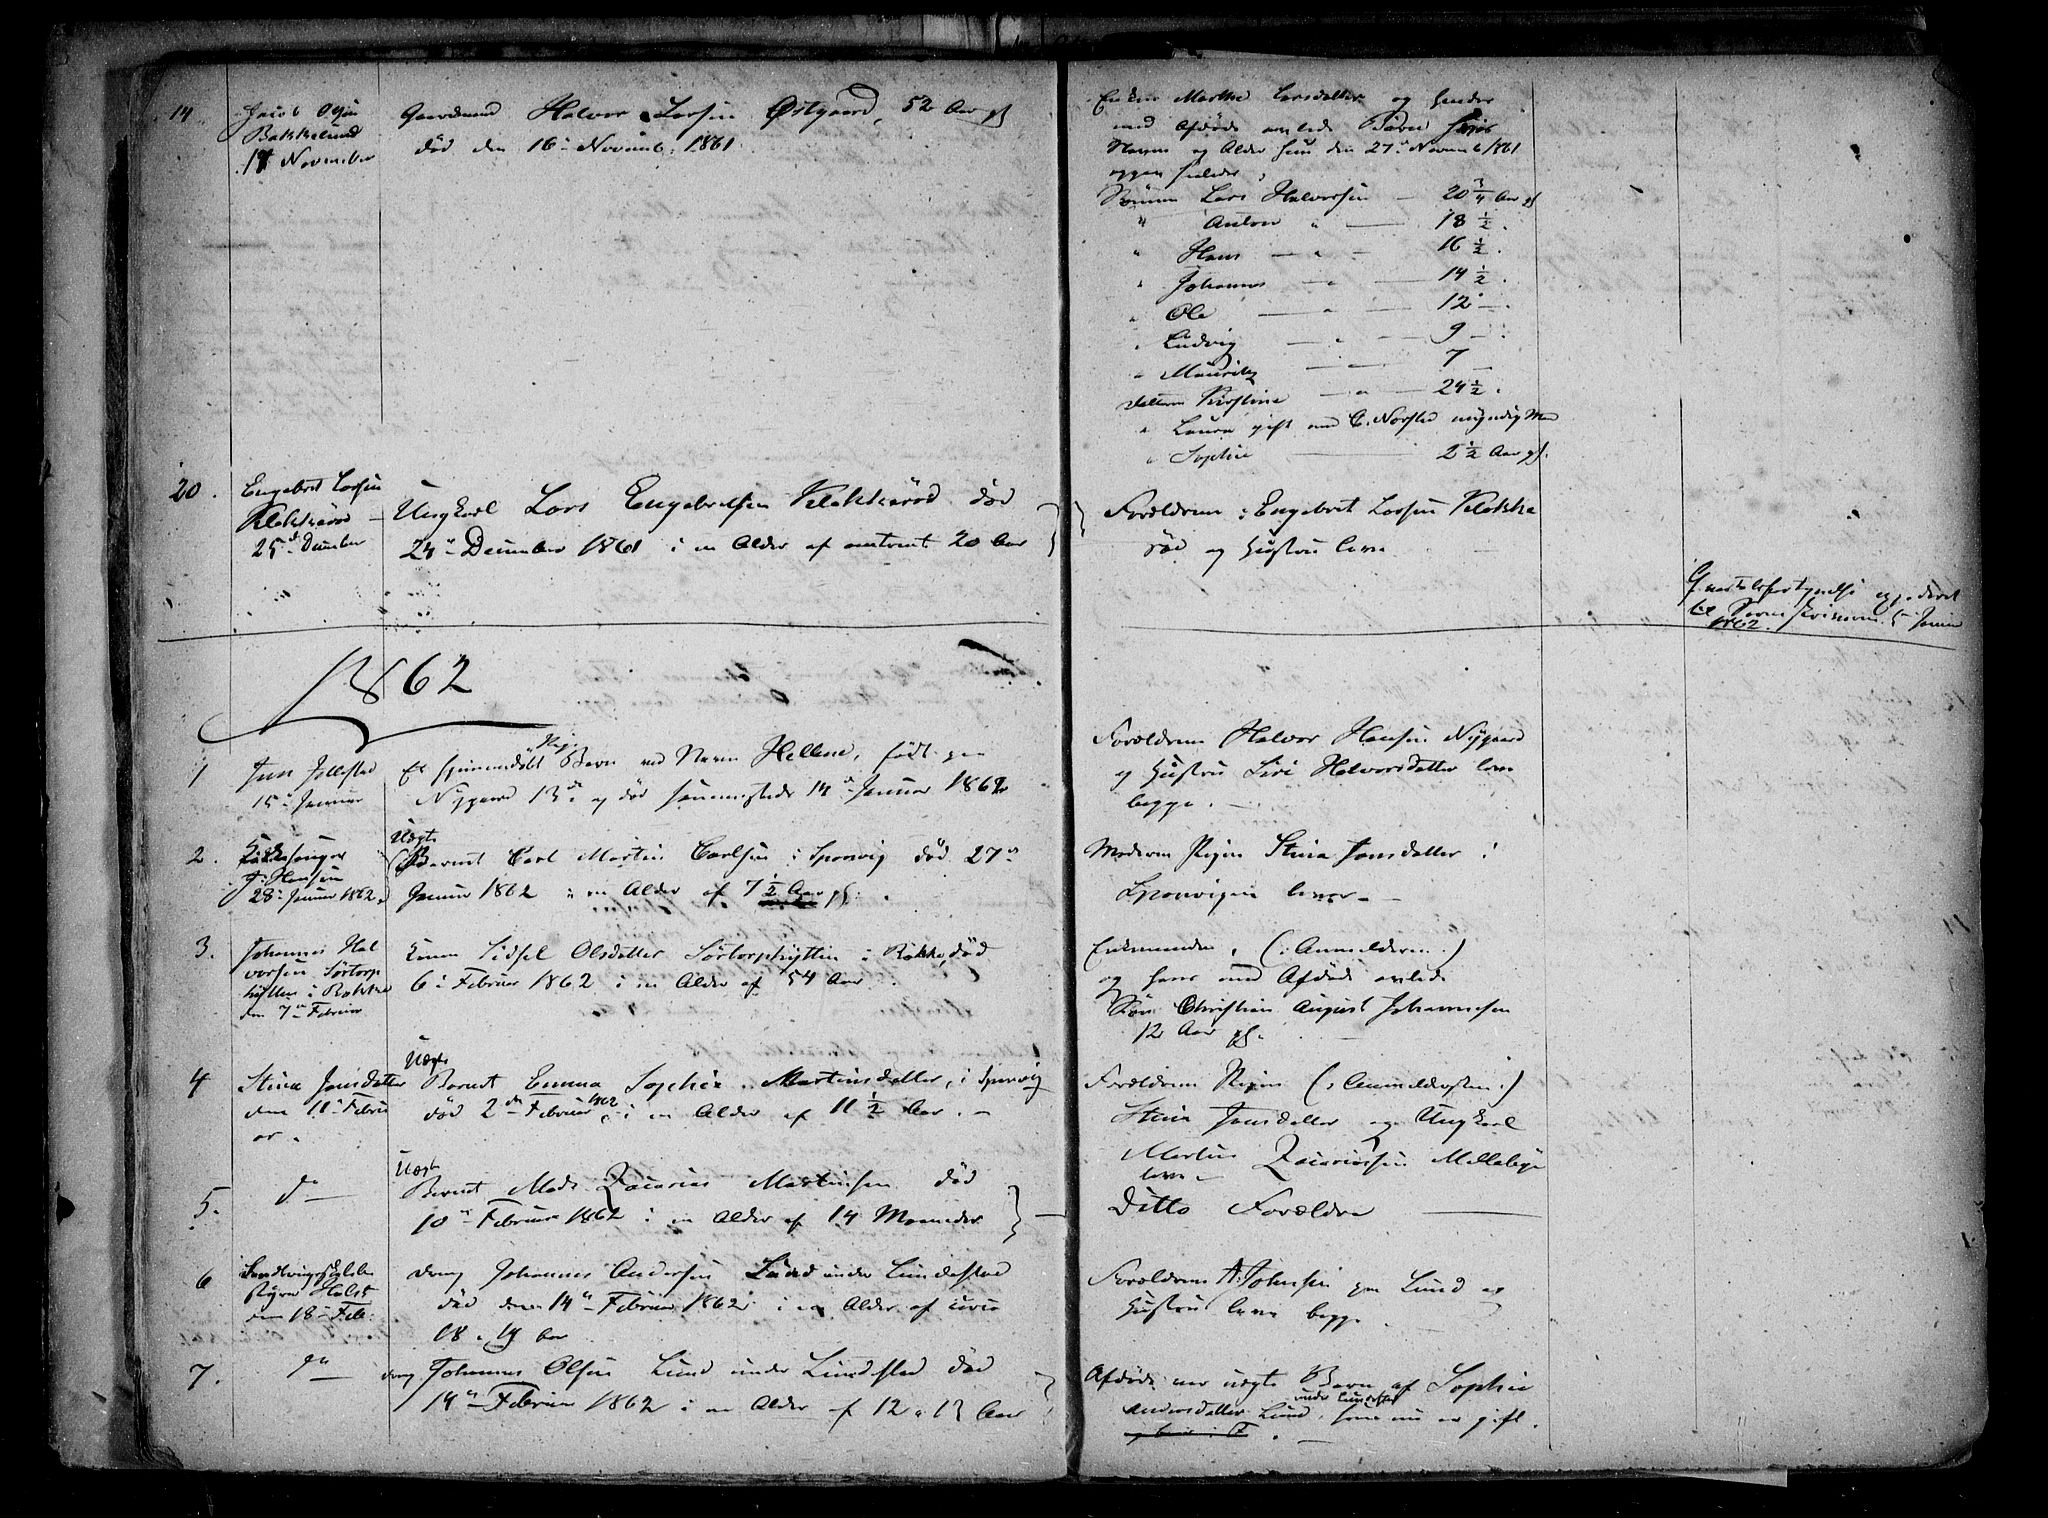 19 Jacob Olsen Gaardmand Halvor Larsen Østgaard, 52 Aar gl
Bakkelund død den 16de Novemb. 1861
17 November
Enken Marthe Larsdatter og hendes
med Afdøde avlede Børn hvis
Navne og Alder hun den 27de Novemb 1861
opgav saaledes,
Sønnen Lars Halvorsen — 20 3/4 Aar gl
" Anton " — 18 1/2.
" Hans — " — 16 1/2.
" Johannes " — 14 1/2.
" Ole — " — 12 —.
" Ludvig — " — 9 —.
" Mauritz " — 7 —
Datteren Kirstine — " — 24 1/2.
" Laura gift med C. Norsted myndig Ma
" Sophie — 2 1/2 Aar gl.
20. Engebret Larsen
Klokkerød —
25de December
Ungkarl Lars Engebretsen Klokkerød død
24de December 1861 i en Alder af omtrent 20 Aar
Forældrene: Engebret Larsen Klokke
rød og Hustru leve
Qvartalsfortegnelse expederet
til Sorenskriveren 5 Januar
1862
1862
1 Jens Jellestad
15de Januar
Et hjemmedøbt Pige
Barn ved Navn Hellene, født paa
Nygaard 13de og død sammesteds 14de Januar 1862
Forældrene Halvor Hansen Nygaard
og Hustru Siri Halvorsdatter leve
begge. —
2. Kirkesanger
J. Hansen
28de Januar 1862.
Uægte
Barnet Carl Martin Carlsen i Sponvig død 27de
Januar 1862 i en Alder af 7 1/2 Aar gl.
Moderen Pigen Stina Jonsdatter i
Sponvigen lever. —
3. Johannes Hal
vorsen Sørtorp
hytten i Rokke
den 7de Februar
Konen Sidsel Olsdatter Sørtorphytten i Rokke død
6te Februar 1862 i en Alder af 54 Aar.
Enkemanden, (: Anmelderen :)
og hans med Afdøde avlede
Søn Christian August Johannesen
12 Aar gl.
4 Stina Jonsdatter
den 11te Febru
ar.
Uægte
Barnet Emma Sophie Martinsdatter, i Sponvig
død 2den Februar 1862, i en Alder af 11 1/2 Aar. —
Forældrene Pigen (: Anmeldersken :)
Stina Jonsdatter og Ungkarl
Martin Zacariasen
leve —
5. do —
Uægte
Barnet Mads Zacarias Martinsen død
10de Februar 1862 i en Alder af 14 Maaneder
Ditto Forældre —
6 Holst
den 18de Feb:
Dreng Johannes Andersen Lund under Lundestad
død den 14de Februar 1862 i en Alder af circa
18 a 19 Aar
Forældrene A. Johnsen paa Lund og
Hustru leve begge.
7. do —
Dreng Johannes Olsen Lund under Lundestad død
14de Februar 1862 i en Alder af 12 a 13 Aar
Afdøde var uægte Barn af Sophie
under Lundestad
Andersdatter Lund, som nu er gift.